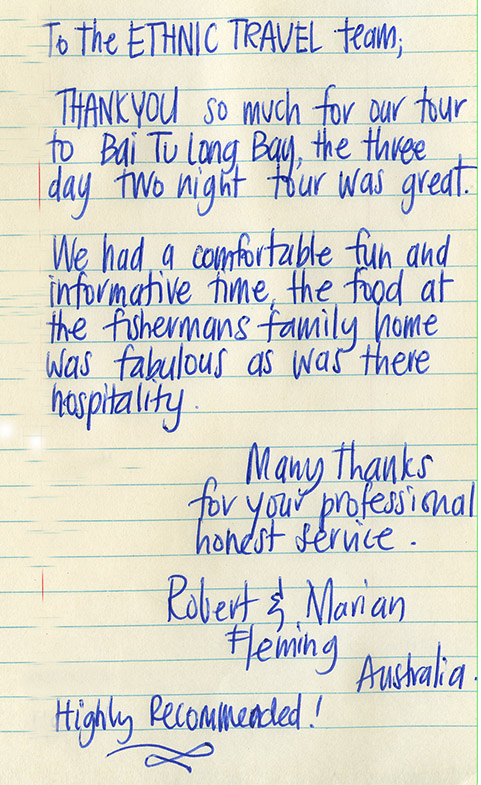 To the ETHNIC TRAVEL team;
THANKYOU so much for our tour
to Bai Tu Long Bay, the three
day two night tour was great.
We had a comfortable fun and
informative time, the food at
the fishermans family home
was fabulous as was there
hospitality.
Many thanks
for your professional
honest service.
Robert & Marian
Fleming
Australia.
Highly Recommended!